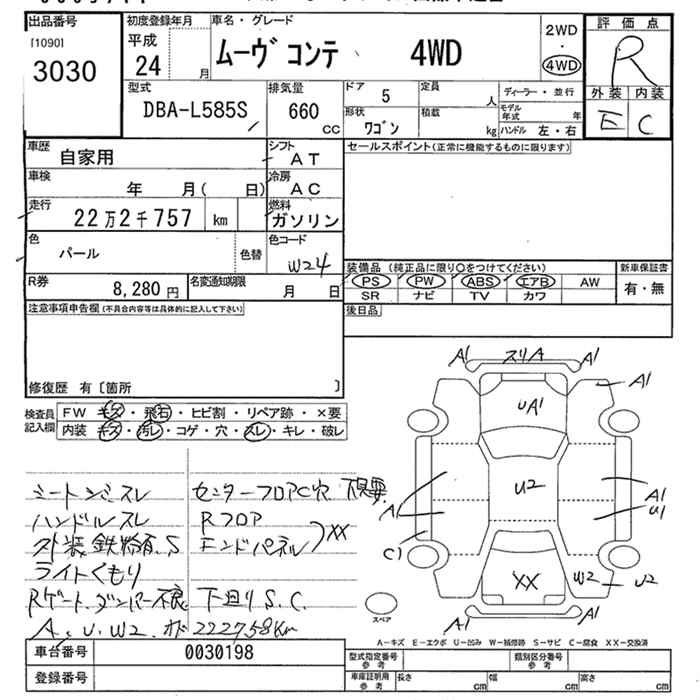 出品番号
[1090]
3030
初度登録年月
平成
24 月
車名・グレード
ムーヴ コンテ 4WD
2WD
・
4WD
評価点
R
外装 内装
E C
型式
DBA-L585S
排気量
660 cc
ドア
5
定員
人
形状
ワゴン
積載
kg
ディーラー・並行
モデル年式 年
ハンドル 左・右
車歴
自家用
シフト
AT
車検
年 月( 日)
冷房
AC
走行
22万2千757 km
燃料
ガソリン
色
パール
色替
色コード
W24
R券
8,280 円
名変通知期限
月 日
セールスポイント(正常に機能するものに限ります)
装備品 (純正品に限り○をつけてください)
PS PW ABS エアB AW
SR ナビ TV カワ
新車保証書
有・無
後日品
注意事項申告欄(不具合内容等は具体的に記入して下さい)
修復歴 有〔箇所 〕
検査員記入欄
FW キズ・飛石・ヒビ割・リペア跡・×要
内装 キズ・汚レ・コゲ・穴・スレ・キレ・破レ
シートシミスレ
ハンドルスレ
外装鉄粉有.S
ライトくもり
Rゲートダンパー不良
A、U、W2、
センターフロアC穴 下見要
Rフロア
エンドパネル
)XX
下廻りS.C.
222758Km
A1 スリA A1
A1
UA1
U2
A1
A1
U1
C1
XX
W2
U2
A1
A1
スペア
A-キズ E-エクボ U-凹み W-補修跡 S-サビ C-腐食 XX-交換済
車台番号
0030198
登録番号
型式指定番号
参考
類別区分番号
参考
車庫証明用
参考
長さ cm
幅 cm
高さ cm